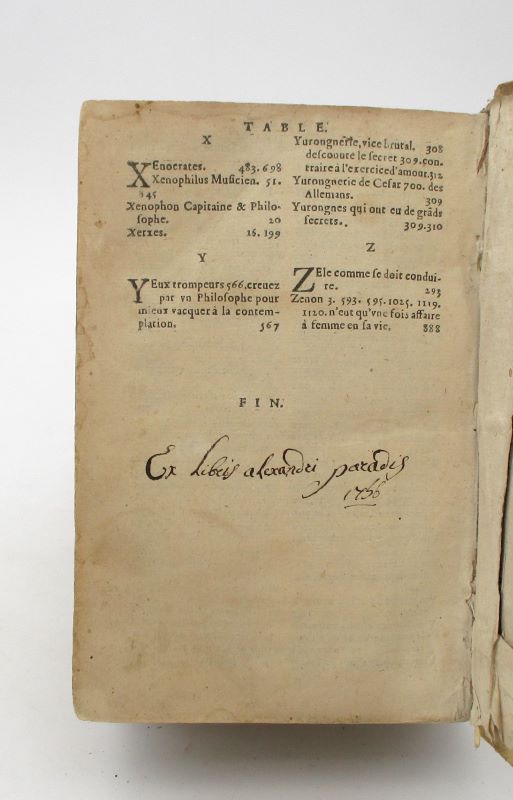 TABLE.
X
XEnocrates. 483.698
Xenophilus Musicien. 51.
845
Xenophon Capitaine & Philo-
sophe. 20
Xerxes. 16.199
Y
YEux trompeurs 566. creuez
par vn Philosophe pour
mieux vacquer à la contem-
plation. 567
Yurongnerie, vice brutal. 308
descouure le secret 309. con
traire à l'exercice d'amour. 312
Yurongnerie de Cesar 700. des
Allemans. 309
Yurongnes qui ont eu de grãds
secrets. 309.310
Z
ZEle comme se doit condui-
re. 293
Zenon 3. 593. 595. 1025. 1119.
1120. n'eut qu'vne fois affaire
à femme en sa vie. 888
FIN.
Ex Libris alexandri paradis
1756